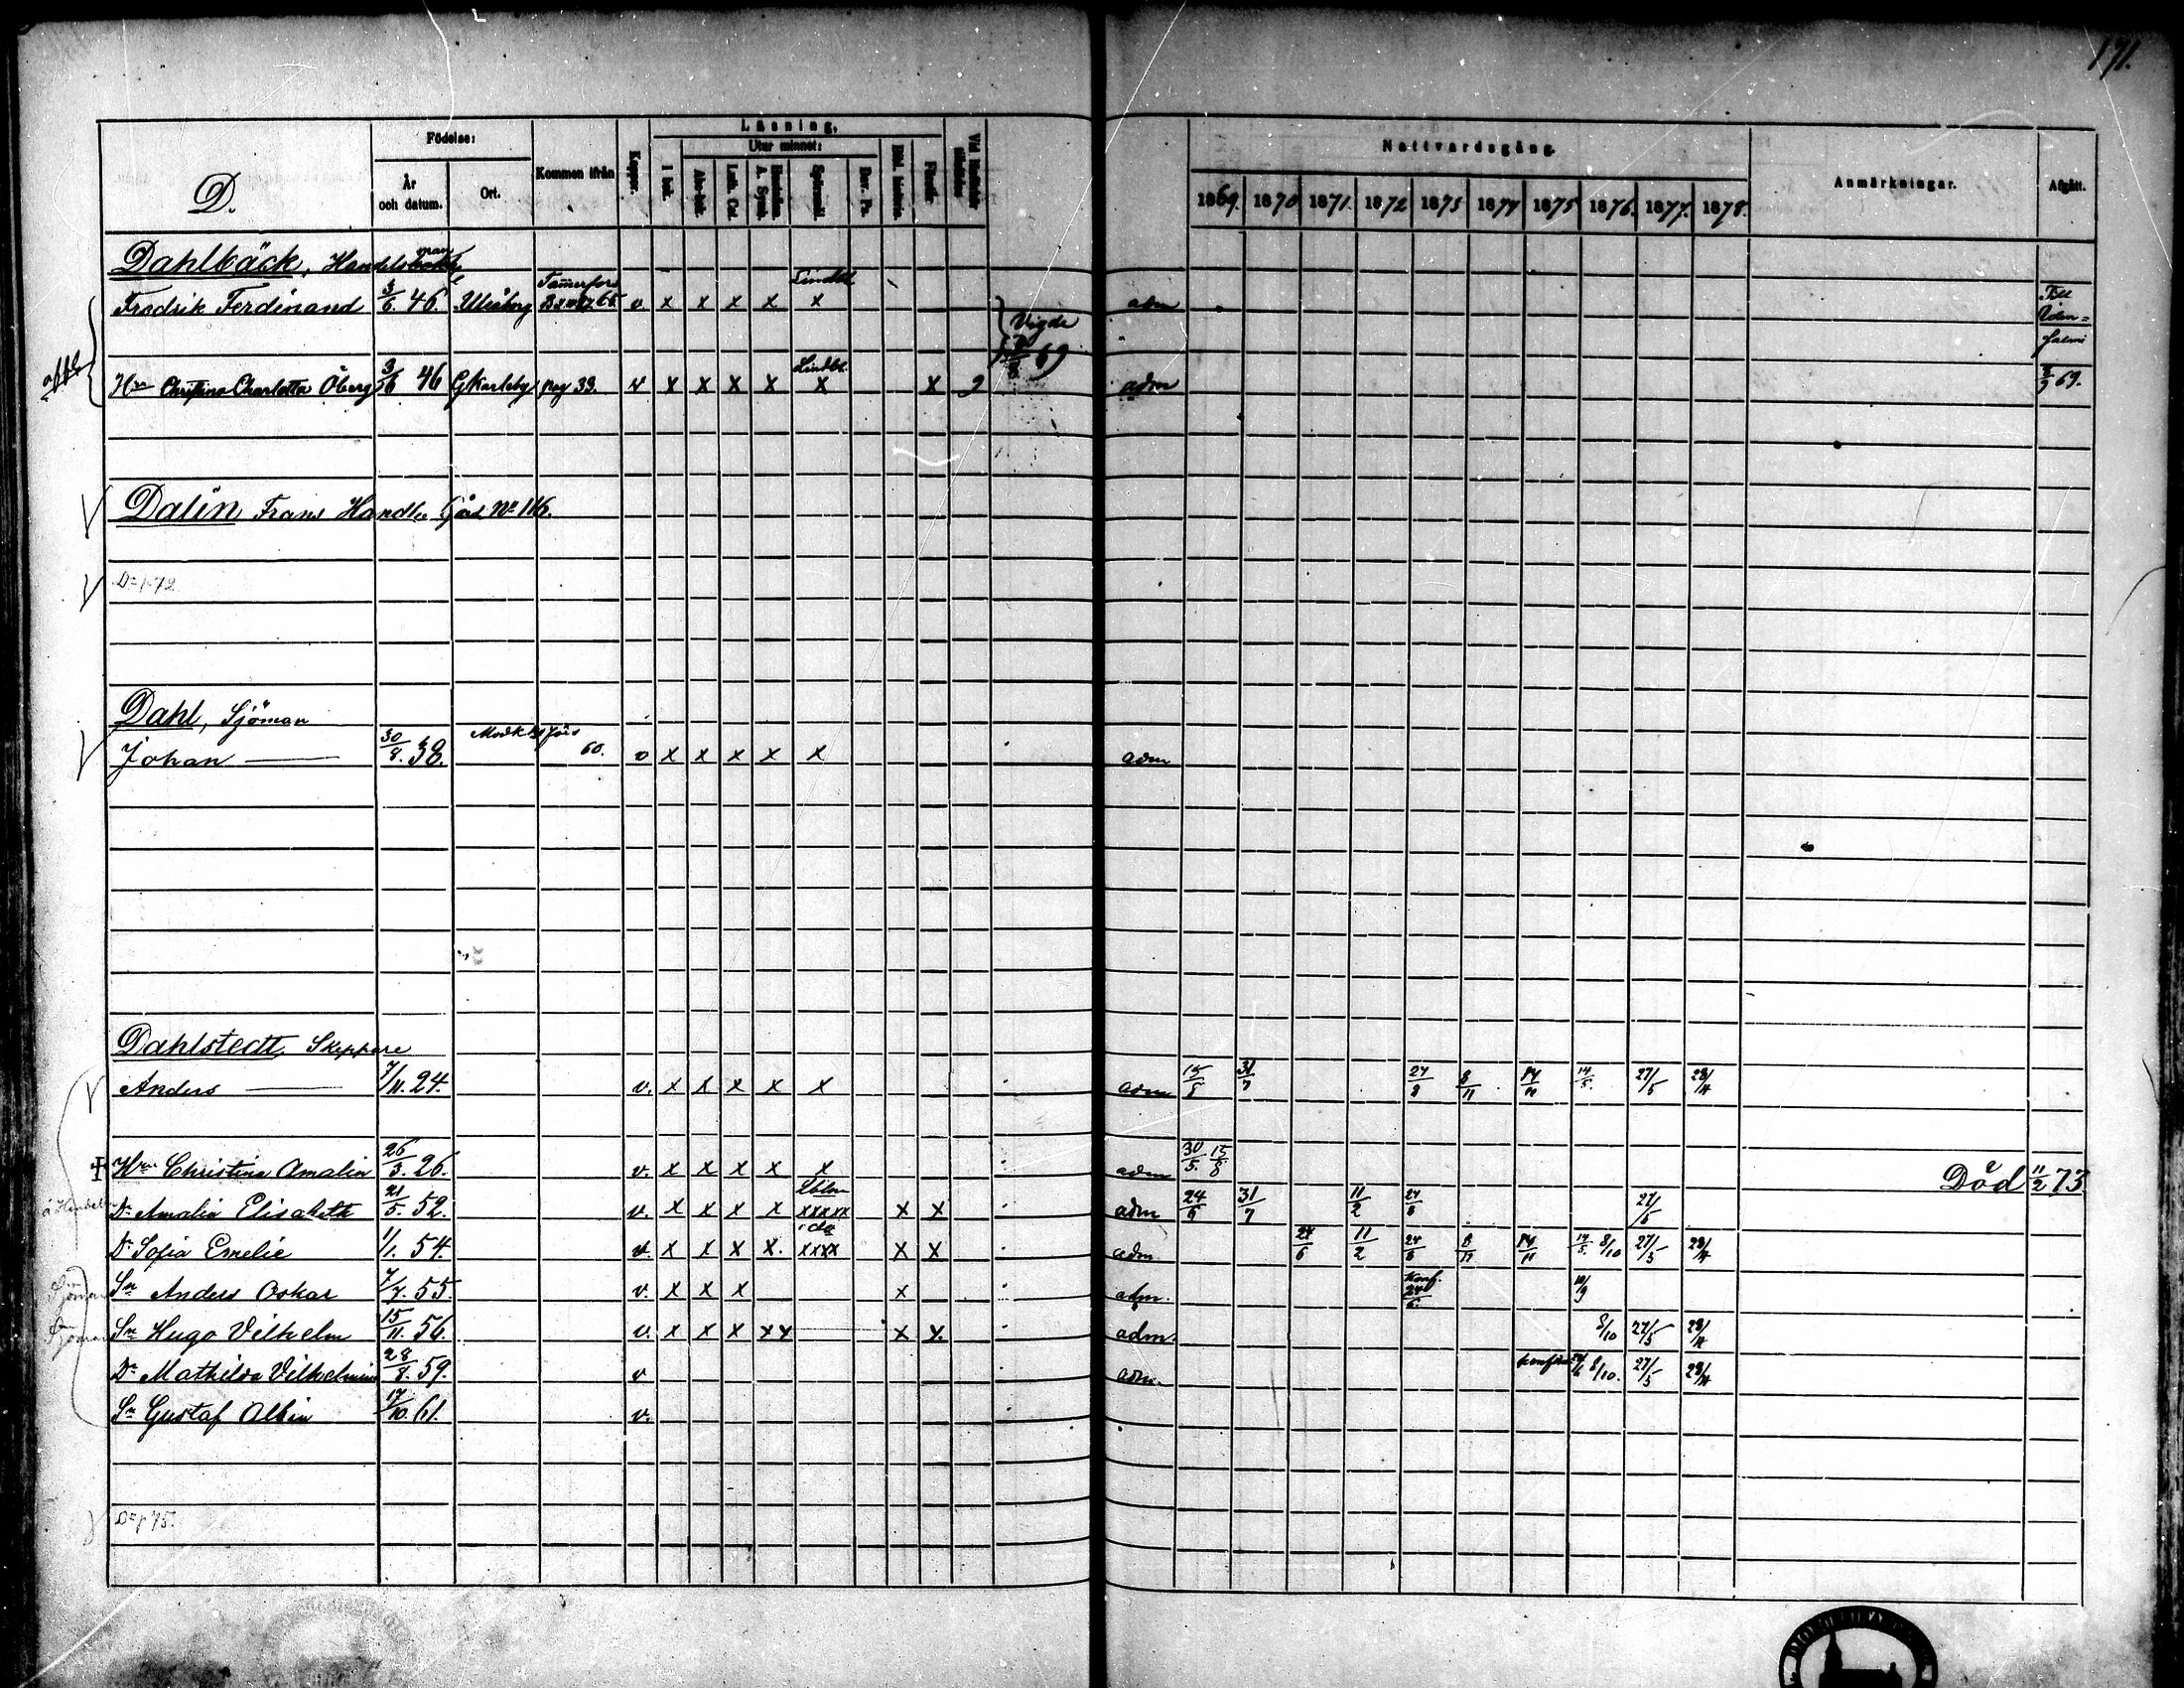 171.
D.
Födelse:
År och datum.
Ort.
Kommen ifrån
Koppor.
Läsning.
I bok.
Utur minnet:
Abc-bok.
Luth. Cat.
Hustaflan A. Symb.
Spörsmål.
Dav. Ps.
Bibl. historia.
Förstår
Nattvardsgång.
1869. 1870 1871. 1872 1873 1874 1875 1876. 1877. 1878.
Anmärkningar.
Afgått.
Dahlbäck, Handels man
Fredrik Ferdinand 3/6. 46. Uleåborg Tammerfors 65. v x x x x Lindbl. x adm Till Iden=
Vigde salmi
69
Hu Christina Charlotta Öberg 3/6 46 GKarleby pag 33. v x x x x Lindbl. x x 9 adm 3/9 69.
Dalin Frans Handl. Gård No 116.
Do p 72
Dahl, Sjöman
Johan 30/8. 38. 60. v x x x x x adm
Dahlstedt, Skeppare
Anders 7/11. 24. v. x x x x x adm 15/8 31/7 24/8 8/11 14/11 14/5. 27/5 28/4
Hu Christina Amalia 26/3. 26. v. x x x x x adm 30/5. 15/8 Död 11/2 73
Dr Amalia Elisabeth 21/5 52. v. x x x x xxxxx x x adm 24/6 31/7 11/2 24/8 27/5
Dr Sofia Emelie 1/1. 54. v. x x x x. xxxx x x adm 24/6 11/2 24/8 8/11 14/11 14/5. 8/10 27/5 28/4
Sjöman Sn Anders Oskar 7/7. 55. v. x x x x adm. Konf. 24/6. 10/9
Sjöman Sn Hugo Vilhelm 15/11. 56. v. x x x xx x x. adm. 8/10 27/5 28/4
Dr Mathilda Vilhelmina 28/8. 59. v adm. 8/10. 27/5 28/4
Sn Gustaf Albin 17/10. 61. v.
Do p 75.